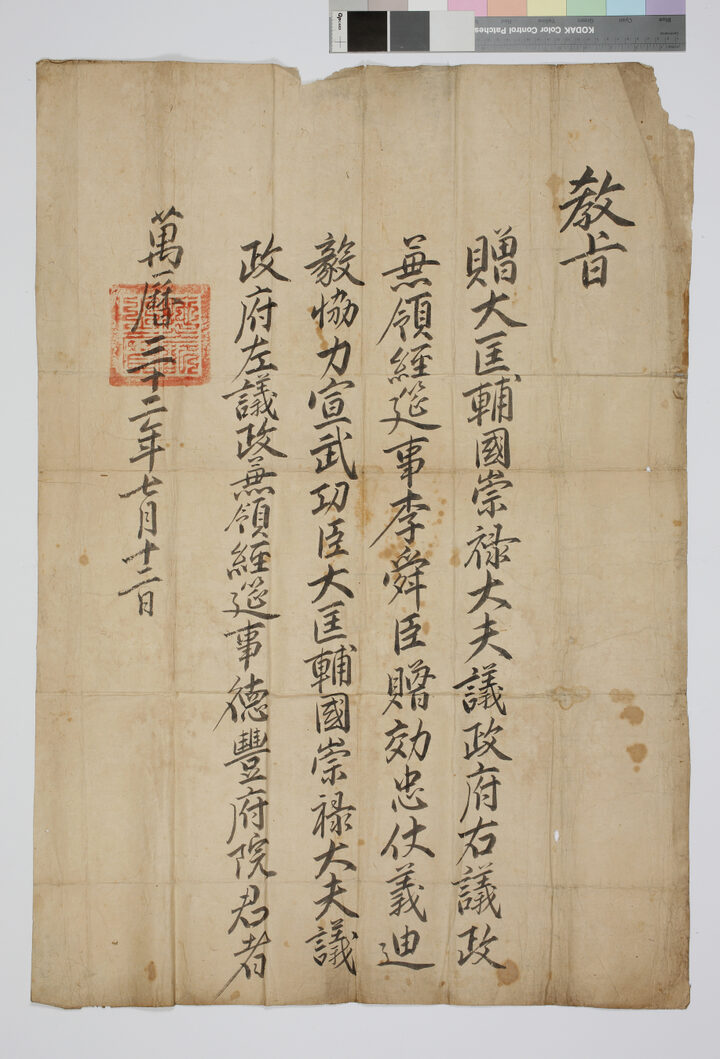 教旨
贈大匡輔國崇禄大夫議政府右議政
兼領經筵事李舜臣贈効忠仗義迪
毅協力宣武功臣大匡輔國崇禄大夫議
政府左議政兼領經筵事德豐府院君者
萬曆三十二年七月十二日
KODAK Color Control Patches